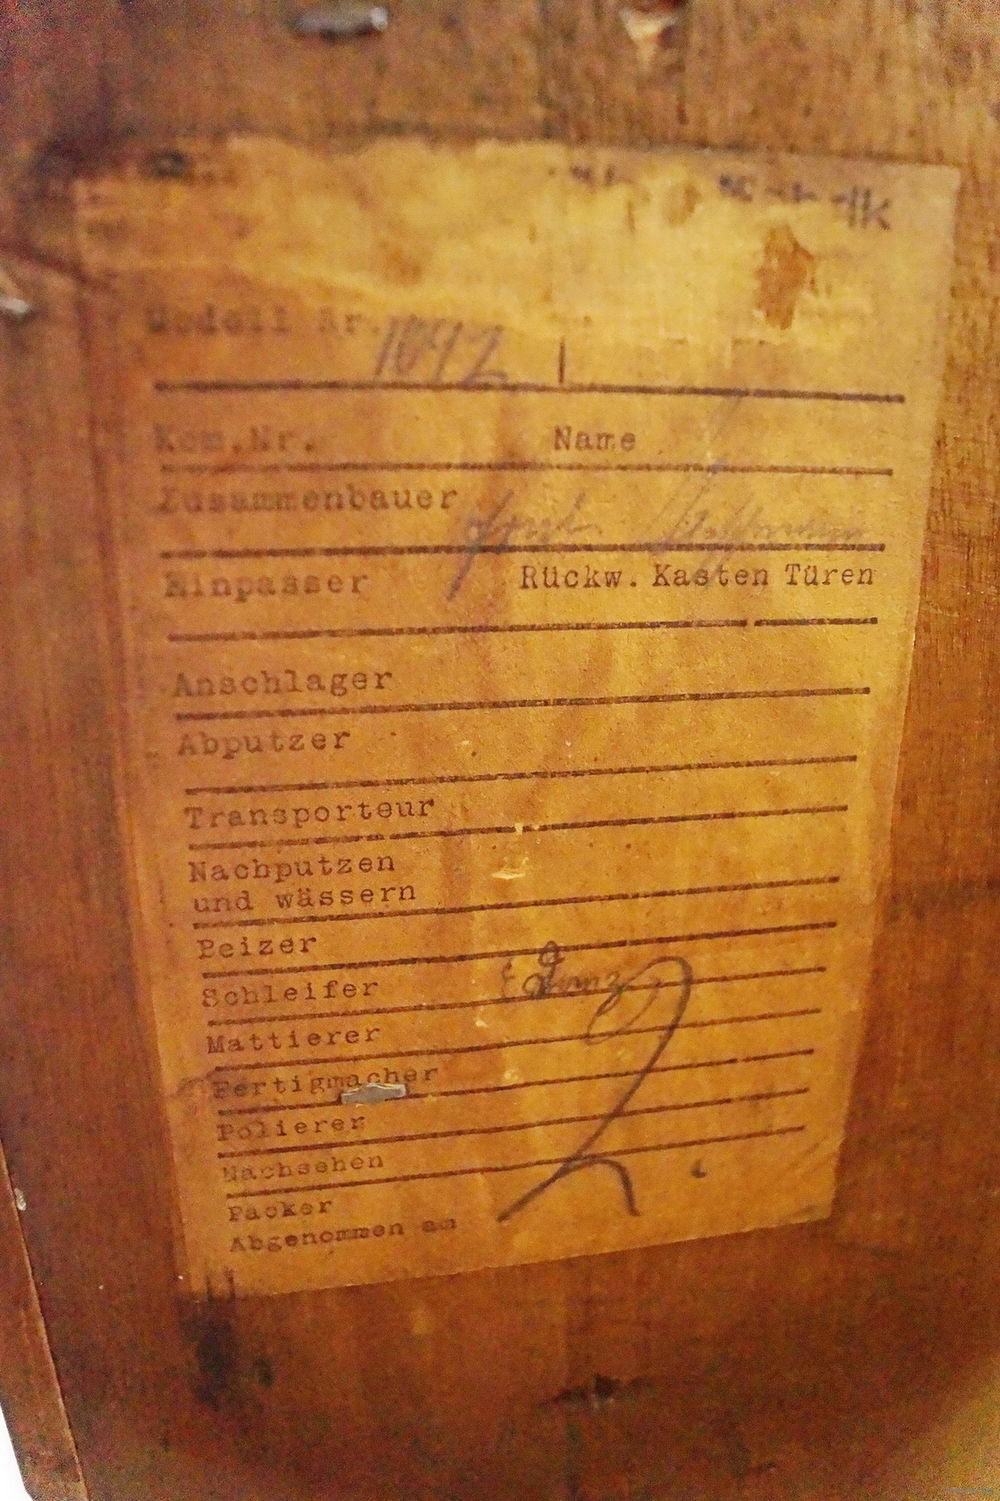 Modell Nr. 1092
Kom.Nr. Name
Zusammenbauer
Einpasser Rückw. Kasten Türen
Anschlager
Abputzer
Transporteur
Nachputzen
und wässern
Beizer
Schleifer
Mattierer
Fertigmacher
Polierer
Nachsehen
Packer
Abgenommen am